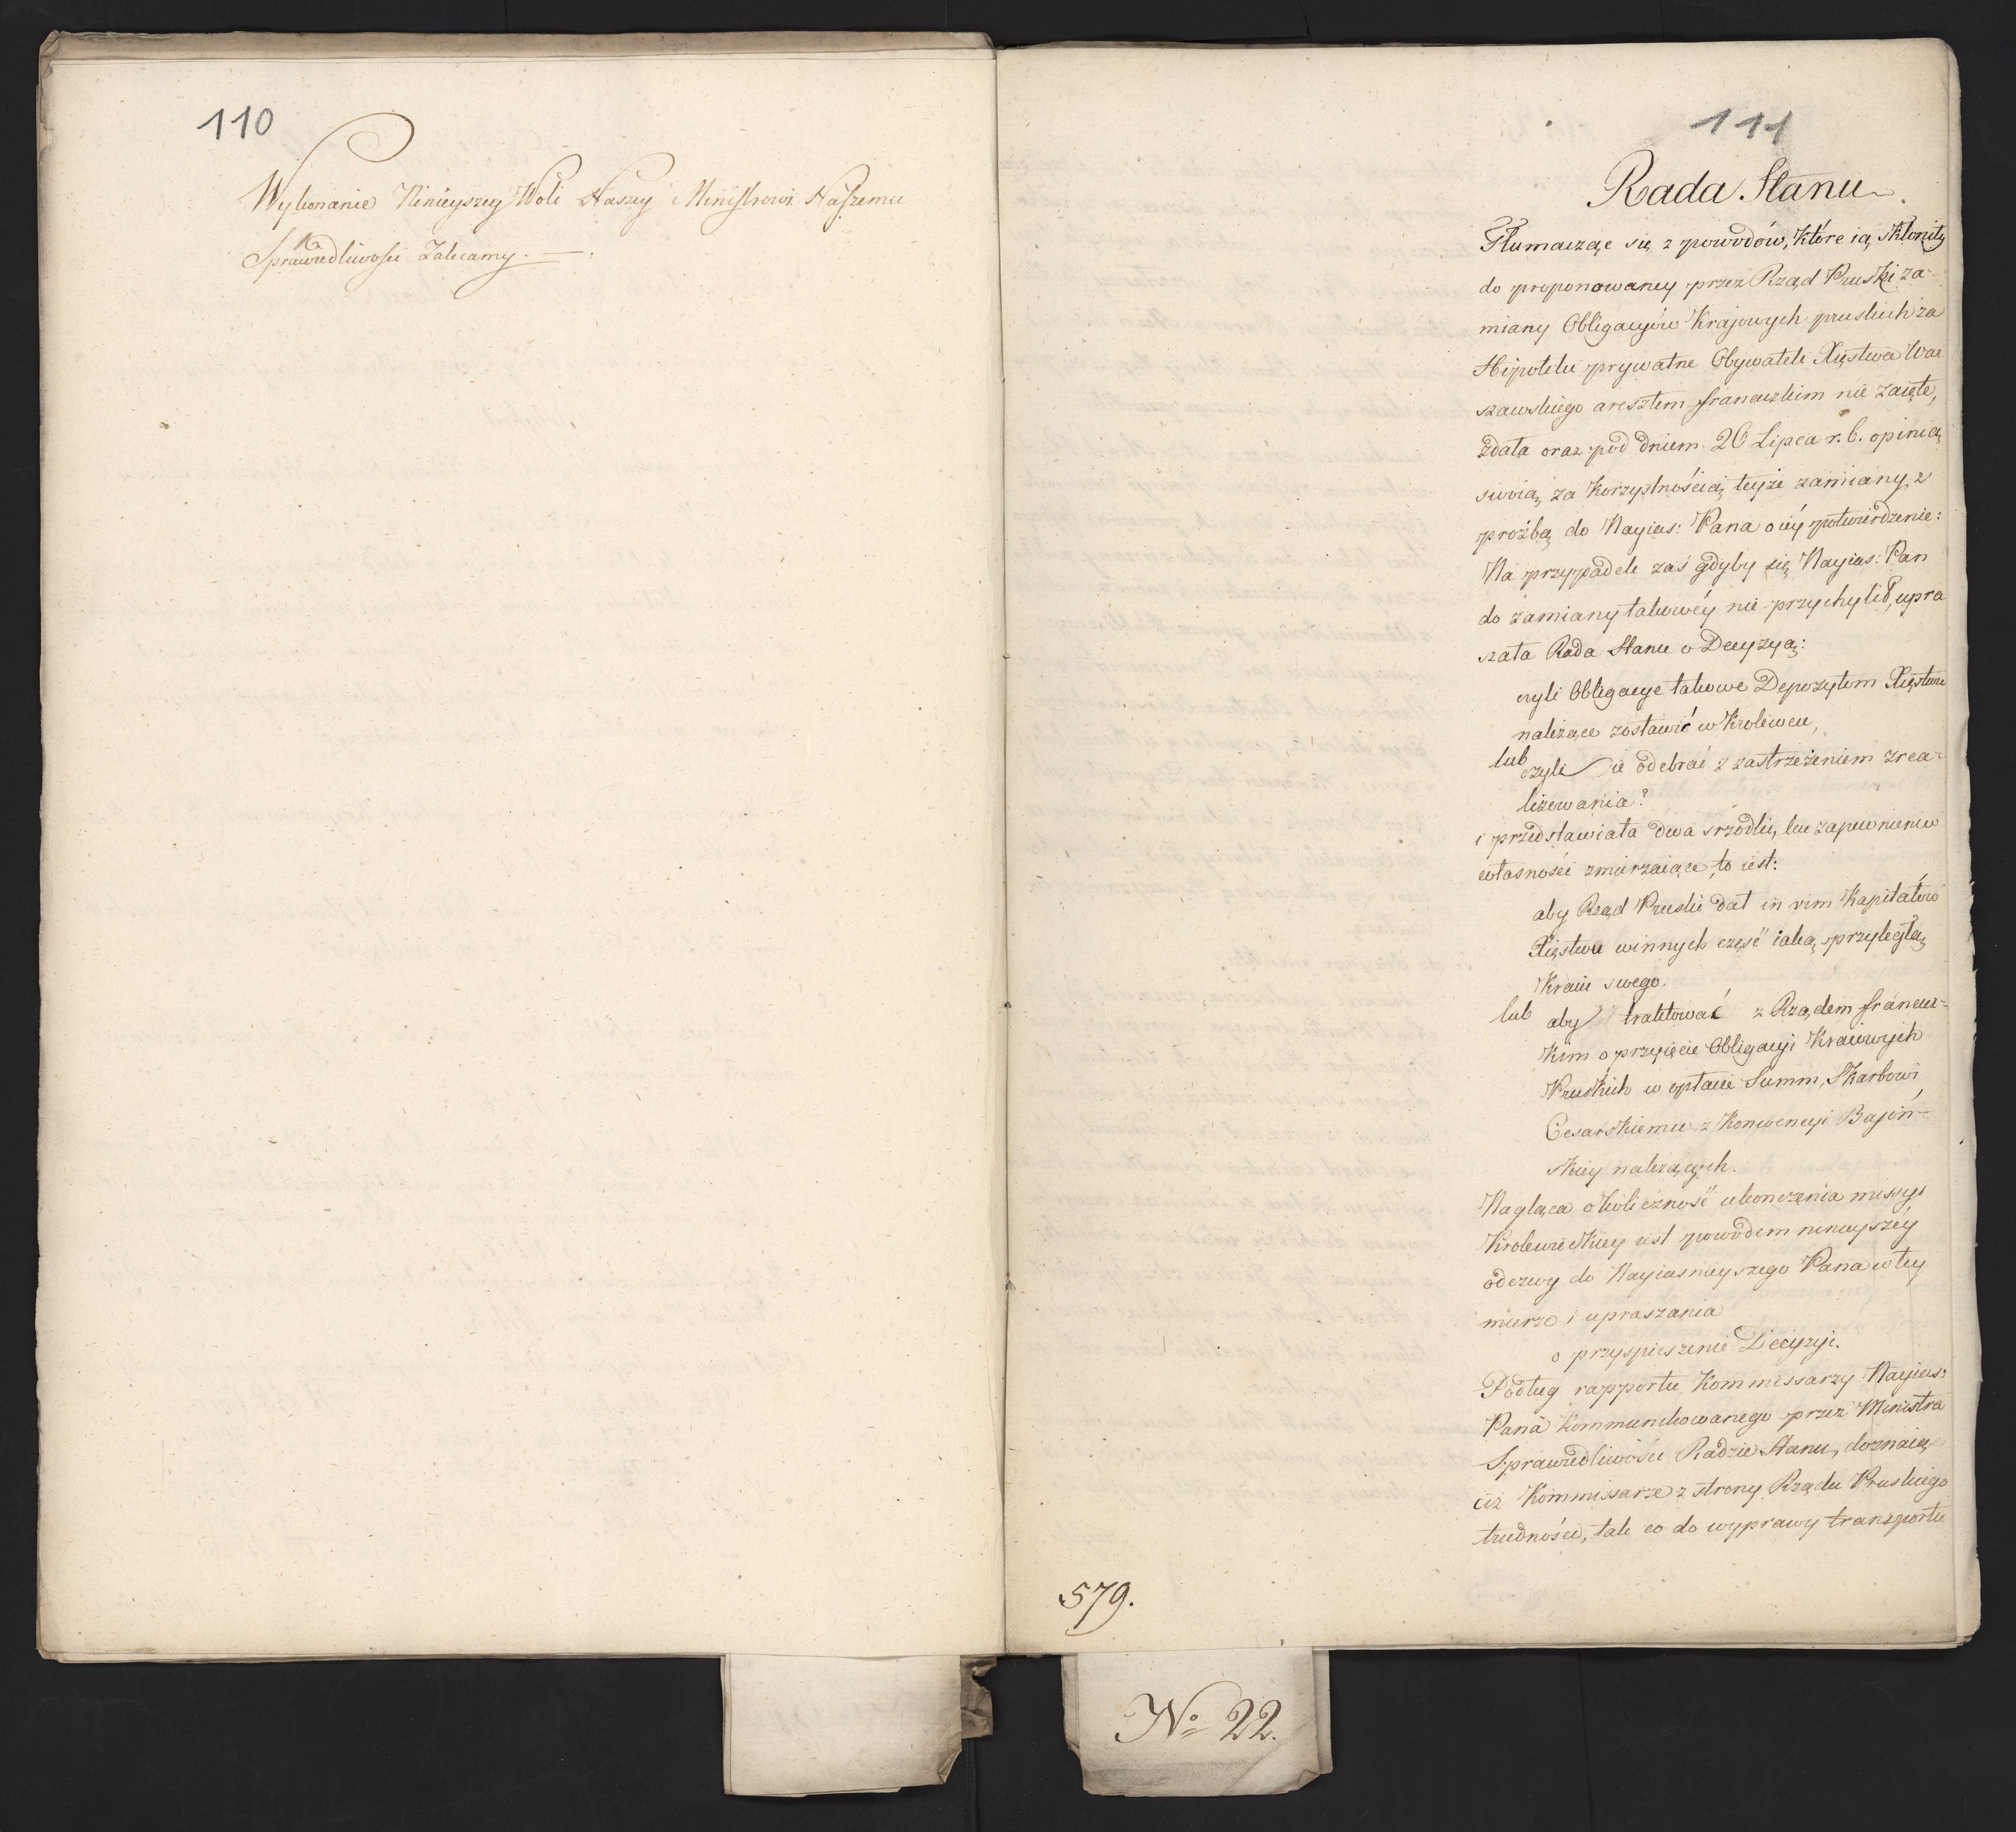 110
Wykonanie Ninieyszey Woli Naszey Ministrowi Naszemu
Sprawiedliwości Zalecamy.
111
Rada Stanu
Tłumacząc się z powodów, które ią skłoniły
do proponowaney przez Rząd Pruski za-
miany Obligacyów Krajowych pruskich za
Hipoteki prywatne Obywateli Xięstwa War
szawskiego aresztem francuzkim nie zaięte,
zdała oraz pod dniem 26 Lipca r. b. opinią
swoią za korzystnościią teyże zamiany, z
proźbą do Nayias: Pana o iéy potwierdzenie:
Na przypadek zaś gdyby się Nayias: Pan
do zamiany takowéy nie przychylił, upra
szała Rada Stanu o Decyzyą:
czyli Obligacye takowe Depozytom Xięstwa
należące zostawić w Krolewcu,
lub czyli ie odebrać z zastrzeżeniem zrea-
lizowania?
i przedstawiała dwa srzodki, ku zapewnieniu
własności zmierzaiące, to iest:
aby Rząd Pruski dał in vim Kapitałów
Xięstwu winnych część iaką przyległą
Kraiu swego.
lub aby traktować z Rządem francuz-
kim o przyięcie Obligacyi Kraiowych
Pruskich w opłacie Summ, Skarbowi
Cesarskiemu z Konwencyi Bajoń-
skiey należących.
Nagląca okoliczność ukonczenia missyi
Krolewieckiey iest powodem ninieyszéy
odezwy do Nayiasnieyszego Pana w tey
mierze i upraszania
o przyspieszenie Decyzyi.
Podług rapportu Kommissarzy Nayias:
Pana kommunikowanego przez Ministra
Sprawiedliwości Radzie Stanu, doznaią
ciż Kommissarze z strony Rządu Pruskiego
trudności, tak co do wyprawy transportu
579.
No 22.